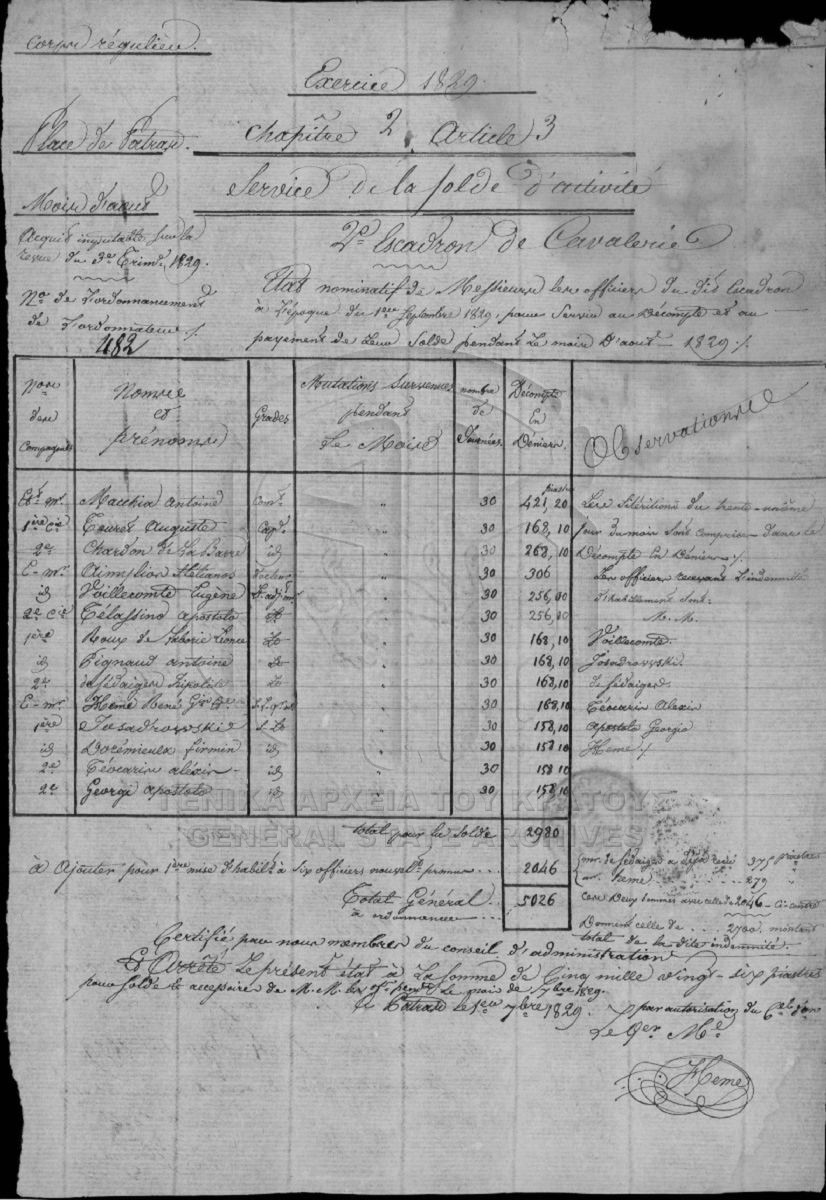 Corps régulier.
Exercice 1829.
Place de Patras.
Chapître 2 Article 3
Service de la solde d'activité
Mois d'aout
Acquis imputable sur la
revue du 3e Trimre 1829.
2e Escadron de Cavalerie
No de l'ordonnancement
de l'ordonnateur
482
Etat nominatif de Messieurs les officiers du dit Escadron
à l'époque du 1er Septembre 1829, pour Servir au Décompte et au
payement de leur Solde pendant le mois d'aout 1829 ./.
Nos des Compagnies | Noms et prénoms | Grades | Mutations Survenues pendant Le Mois | nombre de Journées | Décompte En Déniers | Observations
piastres
Et. Mr. Macchia Antoine Comt. " 30 421,20 Les
1ère Cie Touret Auguste Capt. " 30 168,10 jour du mois sont compris dans le
2e Chardon de La Barre id " 30 268,10 Décompte En Déniers ./.
E-Mr. Stelianos Docteur " 30 306 Les officiers recevant l'indemnité
id Voillecomte Eugène " 30 256,00 d'habillement sont:
2e Cie Apostolo Lt " 30 256,00 M.M.
1ère Roux de Laborie Lt " 30 168,10 Voillecomte.
id Pignaud antoine Lt " 30 168,10 Josadrowski
2e Hipolite Lt " 30 168,10
E-Mr. Heme René " 30 168,10 Téocarin Alexis
1ère Josadrowski S. Lt " 30 158,10 Apostolo Georgio
id Dorémieux firmin id " 30 158,10 Heme ./.
2e Téocarin alexis id " 30 158,10
2e Georgi apostolo id " 30 158,10
ΓΕΝΙΚΑ ΑΡΧΕΙΑ ΤΟΥ ΚΡΑΤΟΥΣ
GENERAL STATE ARCHIVES
total pour la solde 2980
à Ajouter pour 1ère mise d'habilt à six officiers nouvelt promus 2046 375 piastres
mr. heme 279 "
Total Général 5026 Ces Deux sommes avec celle de 2046 Ci-contre
à ordonnancer Donnent celle de 2700 montant
total de la dite indemnité.
Certifié par nous membres du conseil d'administration
Et Arrêté Le présent état à La somme de Cinq mille vingt-six piastres
pour Solde & accessoires de M.M. les offs. pendt le mois de 7bre 1829.
à Patras le 1er 7bre 1829. par autorisation du
Le Qer Me
Heme